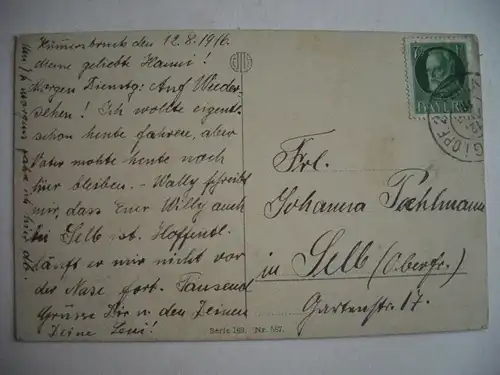 Hümersbruck den 12.8.1916.
Meine geliebte Hanni!
Morgen Dienstg: Auf Wieder-
sehen! Ich wollte eigentl.
schon heute fahren, aber
Vater möhte heute noch
hier bleiben. - Wally schreibt
mir, dass Euer Willy auch
bei Selb ist. Hoffentl.
läuft er mir nicht vor
der Nase fort. Tausend
Grüsse Dir u den Deinen
Deine Leni!
Frl.
Johanna Pöhlmann
in Selb (Oberfr.)
Gartenstr. 17.
BAYERN
Serie 169. Nr. 557.